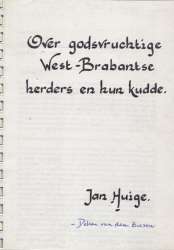 Over godsvruchtige
West-Brabantse
herders en hun kudde.
Jan Huige.
- Deken van den